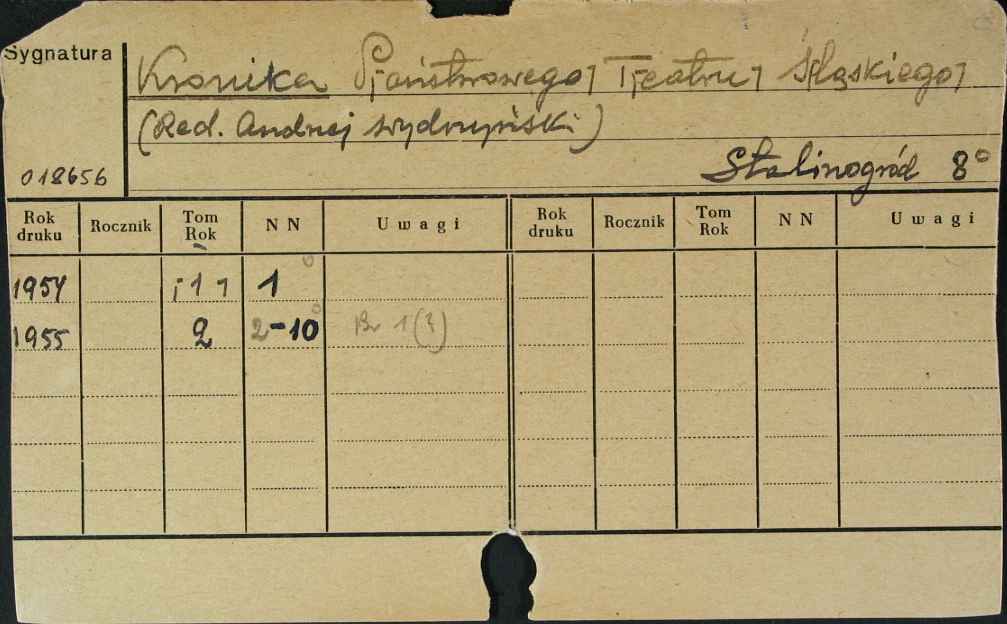 Sygnatura
Kronika P[aństwowego] T[eatru] Śląskiego]
(Red. Andrzej Wydrzyński)
018656
Stalinogród 8°
Rok druku Rocznik Tom Rok NN Uwagi Rok druku Rocznik Tom Rok NN Uwagi
1954 [1] 1
1955 2 2-10 Br 1(?)